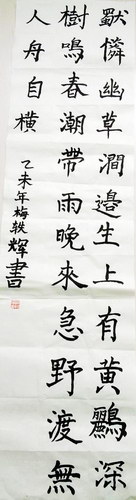 獸憐幽草澗邊生上有黃鸝深
樹鳴春潮帶雨晚來急野渡無
人舟自橫
乙未年梅軼輝書